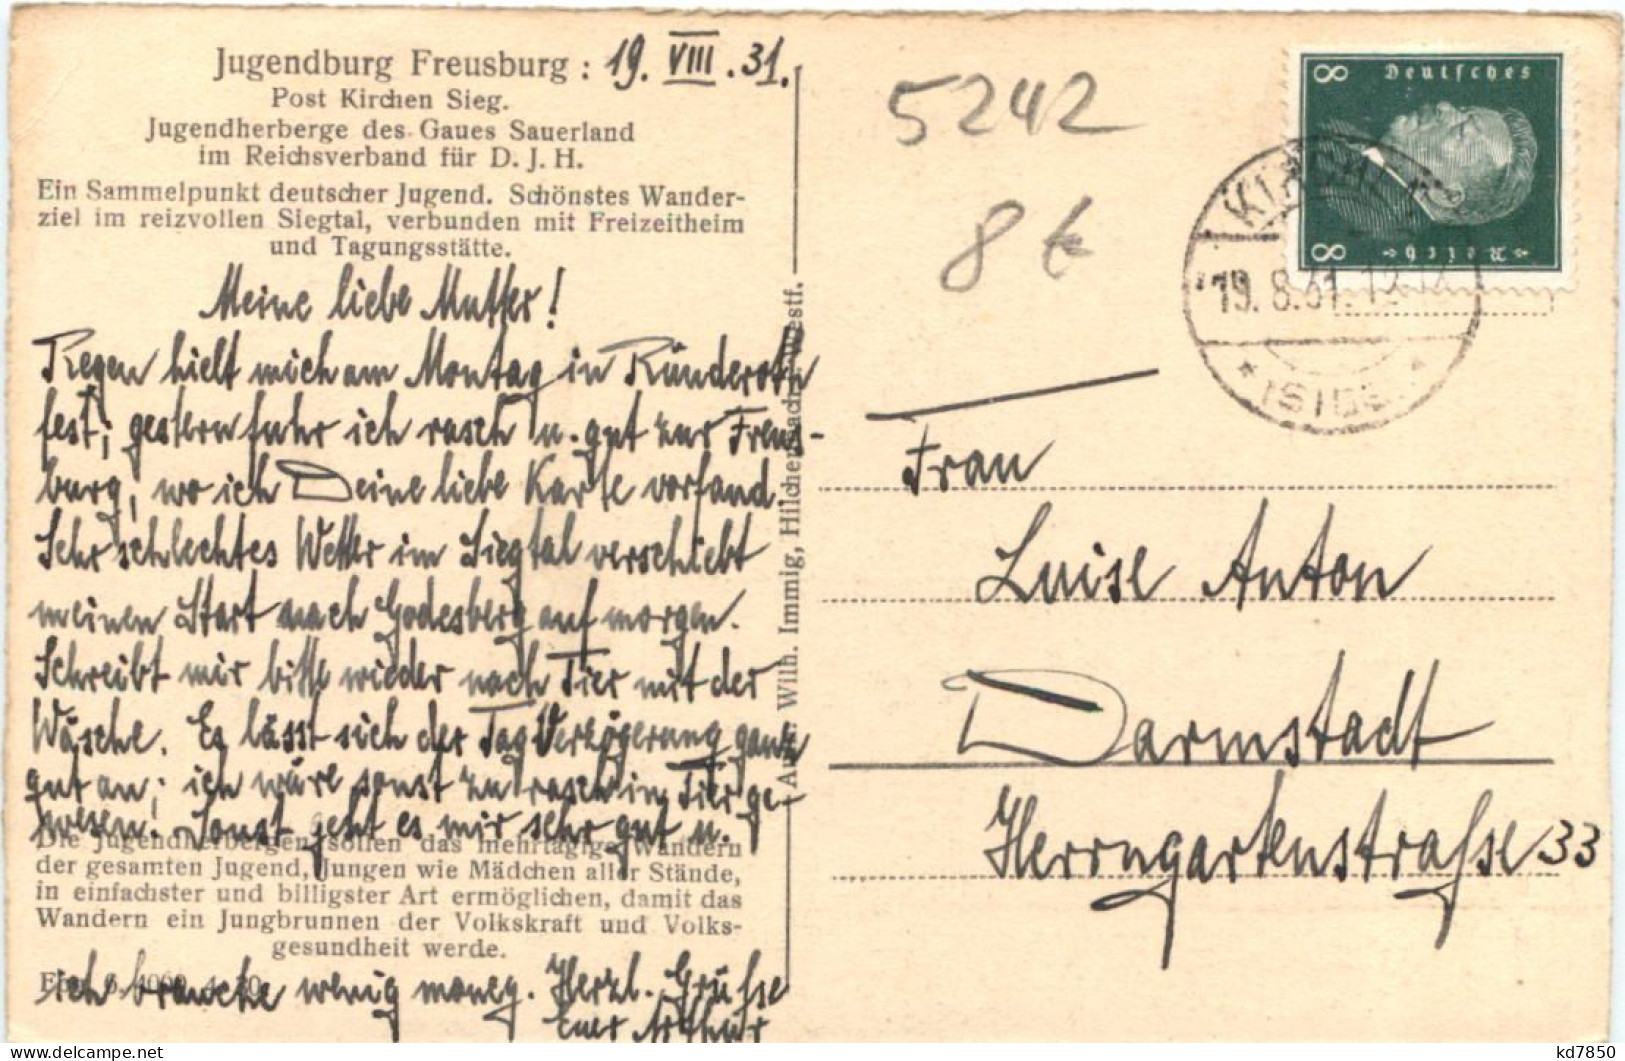 Jugendburg Freusburg : 19. VIII. 31.
Post Kirchen Sieg.
Jugendherberge des Gaues Sauerland
im Reichsverband für D. J. H.
Ein Sammelpunkt deutscher Jugend. Schönstes Wander-
ziel im reizvollen Siegtal, verbunden mit Freizeitheim
und Tagungsstätte.
Meine liebe Mutter!
Regen hielt mich am Montag in Ründeroth
fest; gestern fuhr ich rasch u. gut zur Freus-
burg, wo ich Deine liebe Karte vorfand.
Sehr schlechtes Wetter im Siegtal verschiebt
meinen Start nach Godesberg auf morgen.
Schreibt mir bitte wieder nach Trier mit der
Wäsche. Es lässt sich der Tag Verzögerung ganz
gut an; ich wäre sonst zu rasch in Trier ge-
wesen. Sonst geht es mir sehr gut u.
Die Jugendherbergen sollen das mehrtägige Wandern
der gesamten Jugend, Jungen wie Mädchen aller Stände,
in einfachster und billigster Art ermöglichen, damit das
Wandern ein Jungbrunnen der Volkskraft und Volks-
gesundheit werde.
ich brauche wenig money. Herzl. Grüsse
Euer Arthur
Wilh. Immig, Hilchenbach Westf.
5242
8 €
Deutsches
Reich
8
8
19. 8. 31.
Frau
Luise Anton
Darmstadt
Herrngartenstrasse 33
kd7850